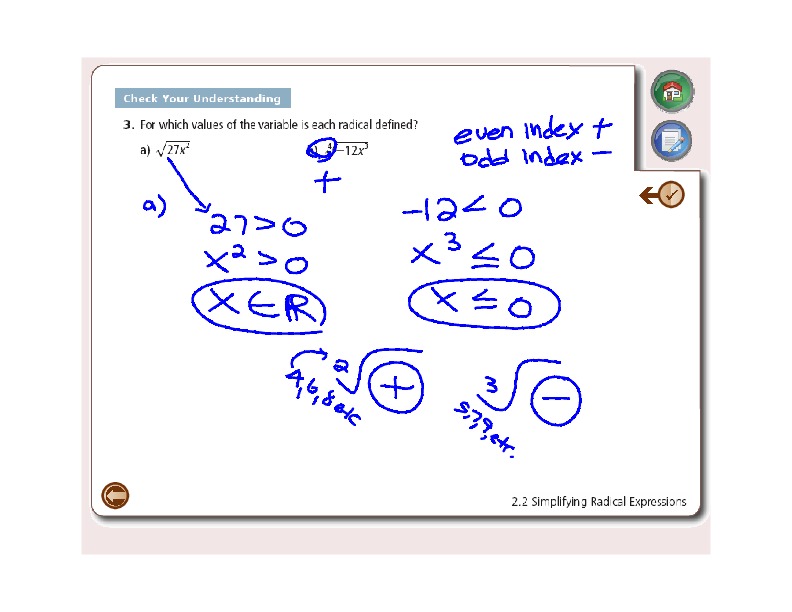 Check Your Understanding
3. For which values of the variable is each radical defined?
a) √27x² b) ⁴√-12x³
even index +
odd index -
+
a)
27 > 0
x² > 0
x ∈ ℝ
-12 < 0
x³ ≤ 0
x ≤ 0
2√+
4, 6, 8 etc
3√-
5, 7, 9, etc.
2.2 Simplifying Radical Expressions